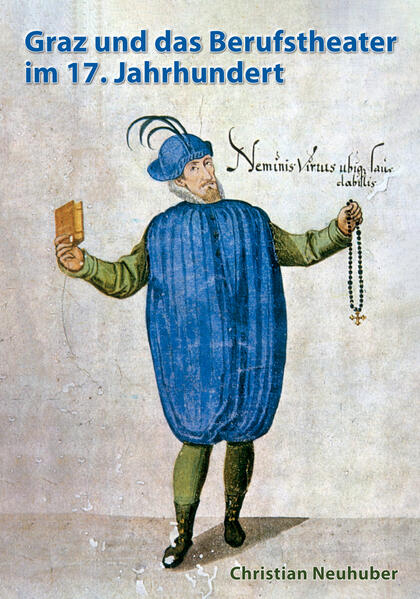 Graz und das Berufstheater
im 17. Jahrhundert
Neminis Virtus ubiq; lau-
dabillis
Christian Neuhuber